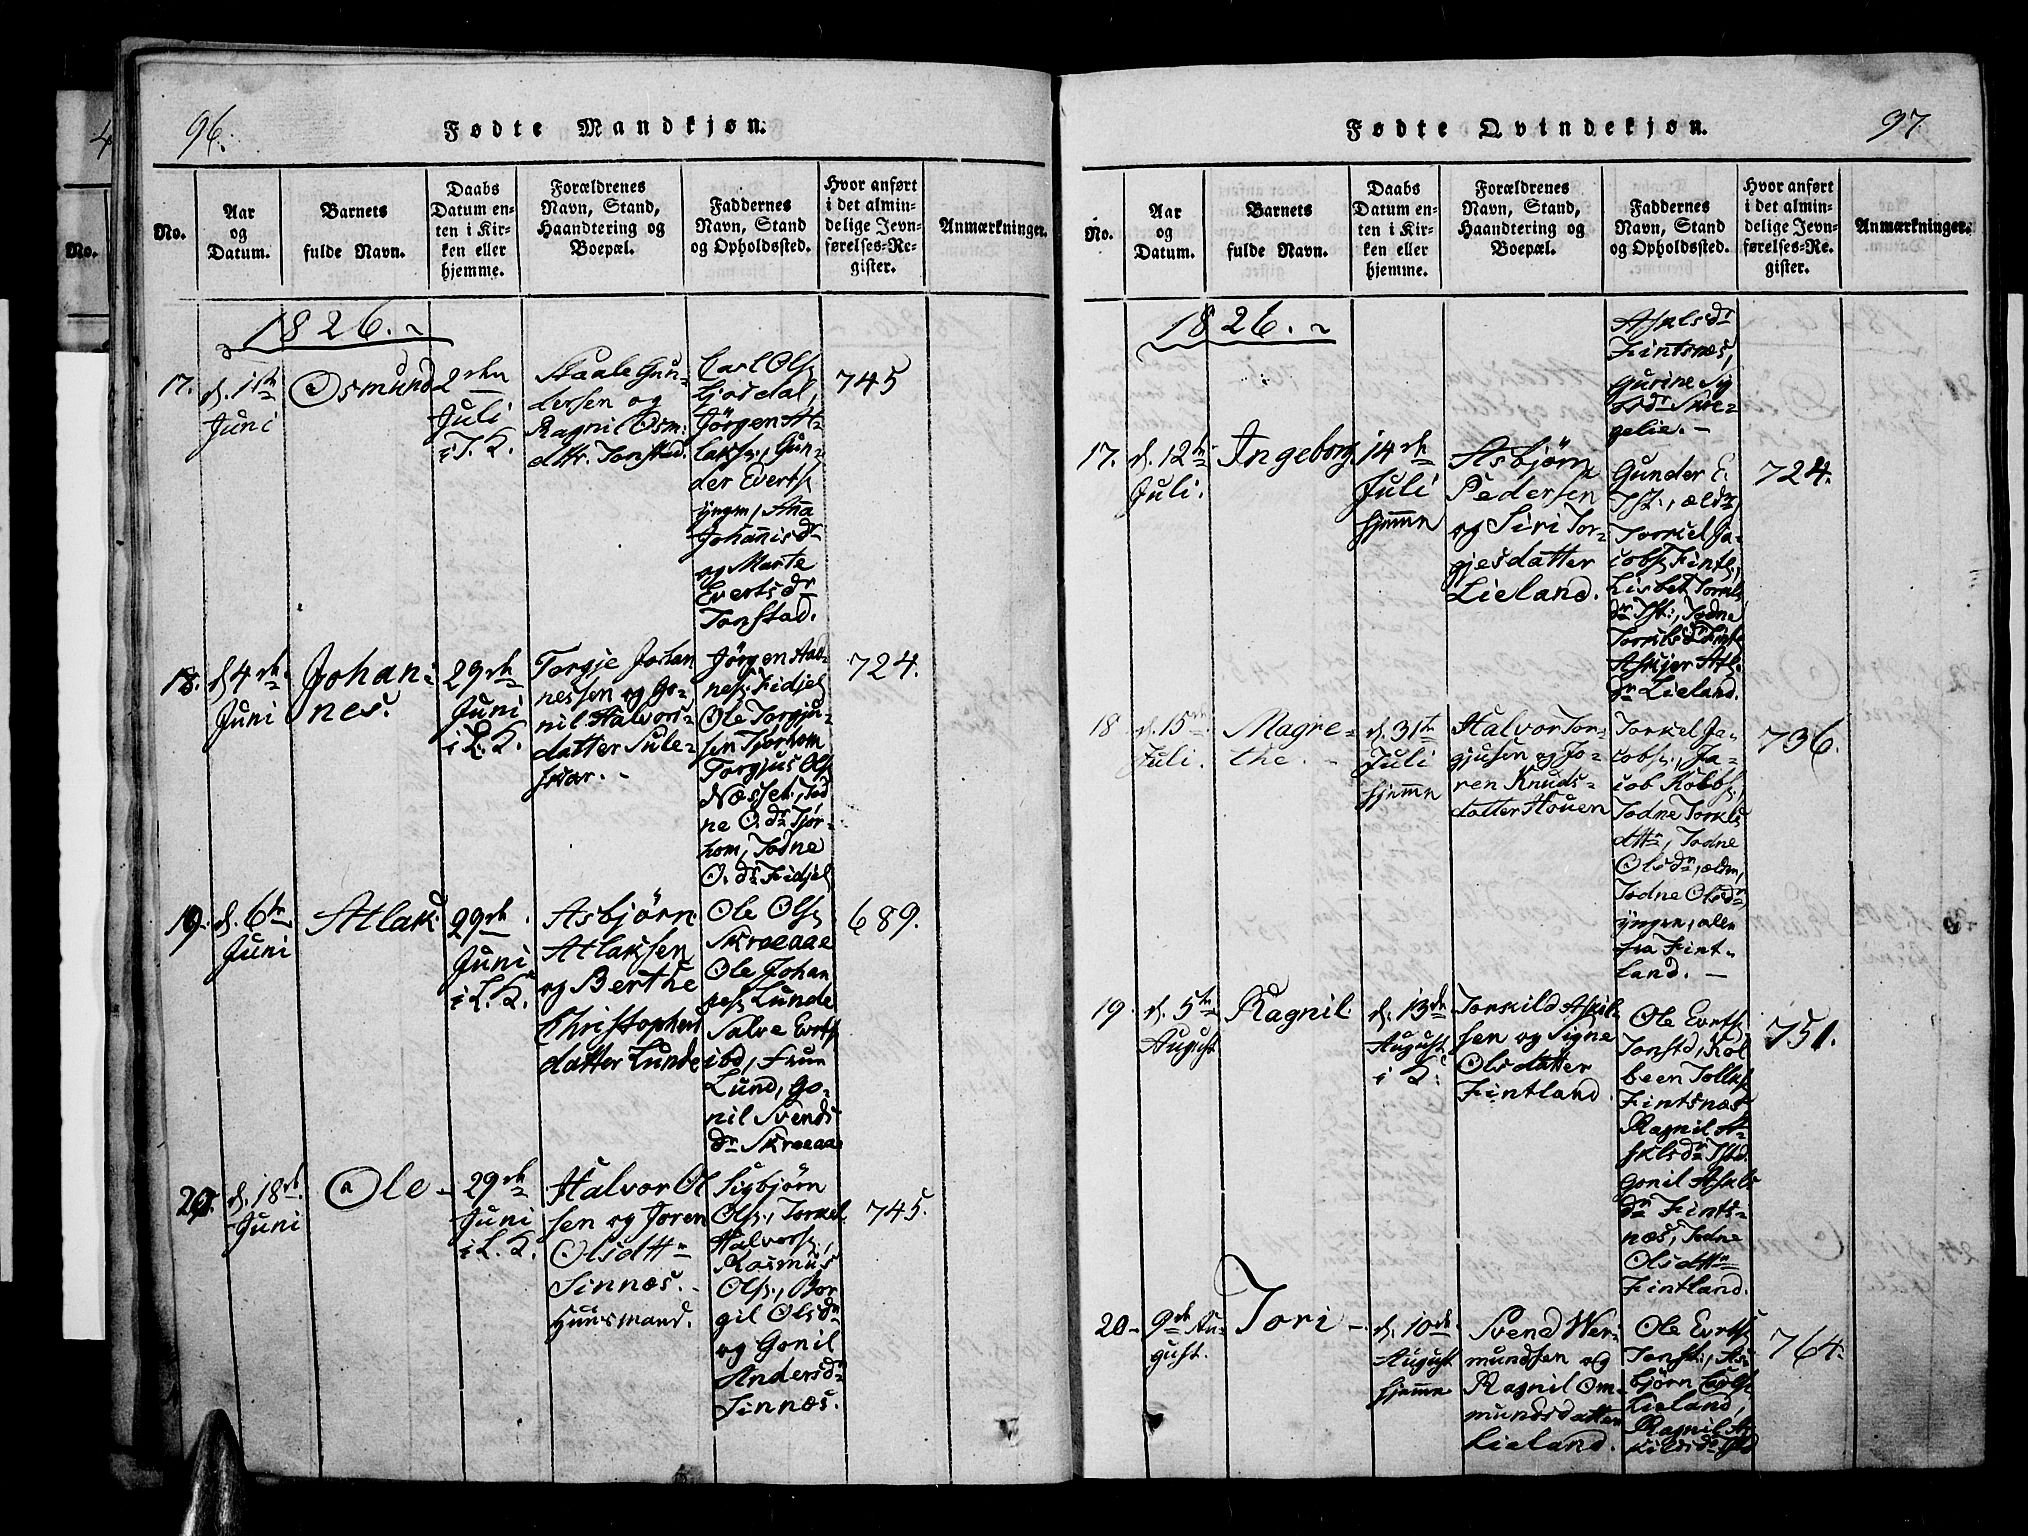 96.
Fødte Mandkjøn.
No.
Aar
og
Datum.
Barnets
fulde Navn.
Daabs
Datum en-
ten i Kir-
ken eller
hjemme.
Forældrenes
Navn, Stand,
Haandtering og
Boepæl.
Faddernes
Navn, Stand
og Opholdssted.
Hvor anført
i det almin-
delige Jevn-
førelses-Re-
gister.
Anmærkninger.
1826.
17.
d. 1ste
Juni
Osmund
2den
Juli
i T. K.
Staale Gun-
dersen og
Ragnil Osm:
dttr. Tonstad.
Carl Ols.
Josdal,
Jörgen At-
laks:, Gun-
der Everts.
yngre, Ana
Johanisdr
og Marte
Evertsdr
Tonstad.
745
18.
d 4de
Juni
Johan-
nes.
29de
Juni
i L. K.
Torgje Johan
nessen og Go-
nil Halvors-
datter Sule-
skar.
Jörgen Aad-
nes. Fidjel
Ole Torgju-
sen Tjorhom
Torgjus Ols.
Næsset, Tod
ne O.dr Tjör-
hom, Todne
O.dr Fidjel.
724.
19.
d. 6te
Juni
Atlak
29de
Juni
i L. K.
Asbjörn
Atlaksen
og Berthe
Christophers
datter Lunde
Ole Ols.
Skreaae
Ole Johan
nes. Lunde
Salve Evrts.
ibd, Frue
Lund, Go-
nil Svends
dr Skreaaae
689.
20.
d. 18de
Juni
Ole
29de
Juni
i L. K.
Halvor Ol
sen og Joren
Olsdttr
Sinnæs.
Huusmand.
Sigbjörn
Ols., Torkel
Halvors.,
Rasmus
Ols., Bor
gil Olsdr
og Gonil
Andersdr
Sinnæs.
745.
97
Fødte Qvindekjøn.
No.
Aar
og
Datum.
Barnets
fulde Navn.
Daabs
Datum en-
ten i Kir-
ken eller
hjemme.
Forældrenes
Navn, Stand,
Haandtering og
Boepæl.
Faddernes
Navn, Stand
og Opholdssted.
Hvor anført
i det almin-
delige Jevn-
førelses-Re-
gister.
Anmærkninger.
1826.
Askelsdr
Fintsnæs,
Gurine Sig
osdr Skre-
gelie.
17.
d. 12te
Juli.
Ingeborg
14de
Juli
hjemme
Asbjörn
Pedersen
og Siri Tor-
gjesdatter
Lieland.
Gunder E.
Tst., ældr,
Torkel Ja-
cobs. Fintl.
Lisbet Torkls
dr Tst:, Todne
Torkelsdr Fintl
Askjer Atl.
dr Lieland.
724.
18
d. 15de
Juli.
Magre-
the.
d. 31te
Juli
hjemme
Halvor Tor-
gjusen og Jo-
ren Knuds-
datter Houen
Torkel Ja-
cobs., Ja-
cob Kolbs.,
Todne Torkels
dttr, Todne
Olsdr, ældre,
Todne Olsdr,
yngre, alle
fra Fint-
land.
736.
19
d. 5te
August
Ragnil.
d. 13de
August
i K:
Torkild Askil-
sen og Signe
Olsdatter
Fintland
Ole Evrts.
Tonstd, Kol
been Tolleks.
Fintsnæs
Ragnil A-
skelsdr Tstd.
Gonil Askels
dr Fints-
næs, Todne
Olsdttr
Fintland.
751.
20
9de Au-
gust.
Tori
d. 10de
August
hjemme
Svend Wer-
mundsen og
Ragnil Om-
mundsdatter
Lieland.
Ole Evrts.
Tonst., As-
björn Carls.
Lieland,
Ragnil As-
kildsdr Tstd
764.